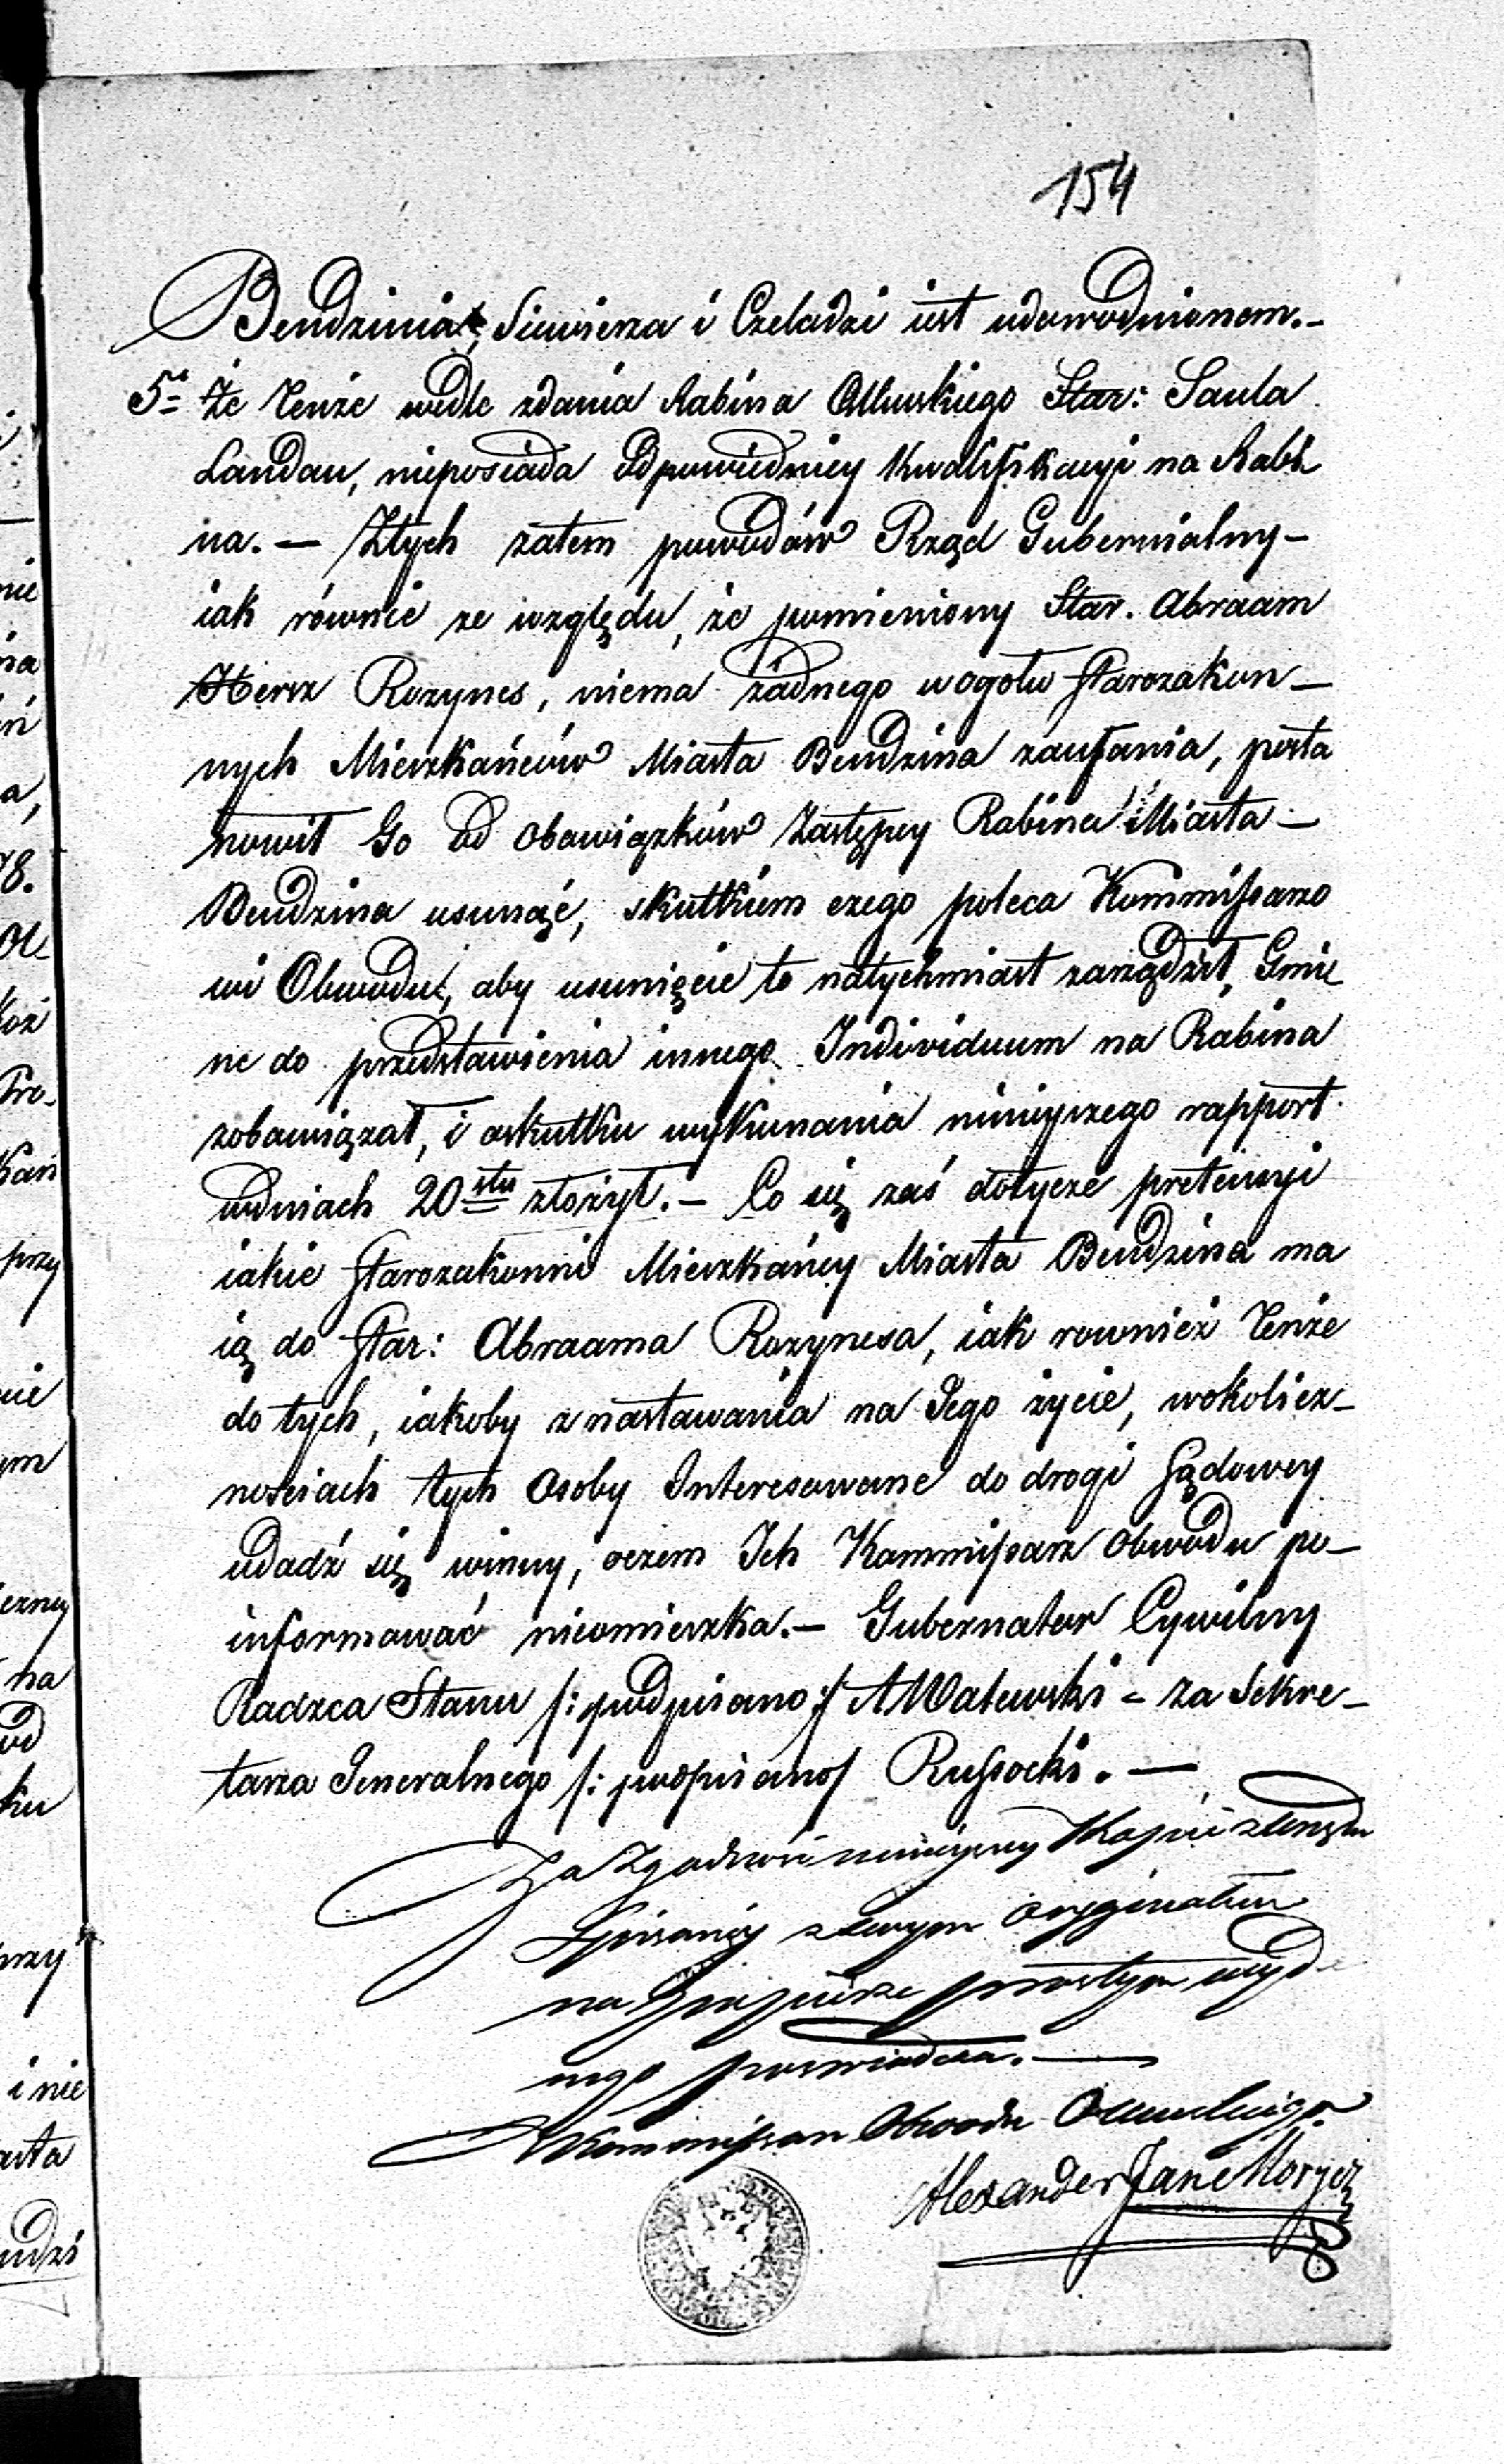 154
Bendzinia, Siewierza i Czeladzi iest udowodnionem.–
5º Że Tenże wedle zdania Rabina Olkuskiego Star: Saula
Landau, nieposiada odpowiedniey kwalifikacyi na Rabi
na. — Ztych zatem powodów Rząd Gubernialny –
iak równie ze względu, że pomieniony Star. Abraam
Hersz Rozynes, niema żadnego wogołu Starozakon –
nych Mieszkańców Miasta Bendzina zaufania, posta
nowił Go od obowiązków Zastępcy Rabina Miasta –
Bendzina usunąć, skutkiem czego poleca Kommissarzo
wi Obwodu, aby usunięcie to natychmiast zarządził, Gmi
nę do przedstawienia innego Individuum na Rabina
zobowiązał, i oskutku wykonania ninieyszego rapport
wdniach 20stu złożył. – Co się zaś dotycze pretensyi
iakie Starozakonni Mieszkańcy Miasta Bendzina ma
ią do Star: Abraama Rozynesa, iak rownież Tenże
do tych, iakoby z nastawania na Jego życie, wokolicz–
nosciach tych Osoby Interesowane do drogi Sądowey
udadź się winny, oczem Ich Kommissarz Obwodu po–
informować nieomieszka. – Gubernator Cywilny
Radzca Stanu /: podpisano :/ A Walewski – za Sekre–
tarza Jeneralnego /: podpisano/ Russocki. —
Za Zgodność ninieyszey Kopii zUrzędu
Spisaney zswym oryginałem
na Papierze prostym wyda
nego poswiadcza. —
Kommissarz Obwodu Olkuskiego
Alexander